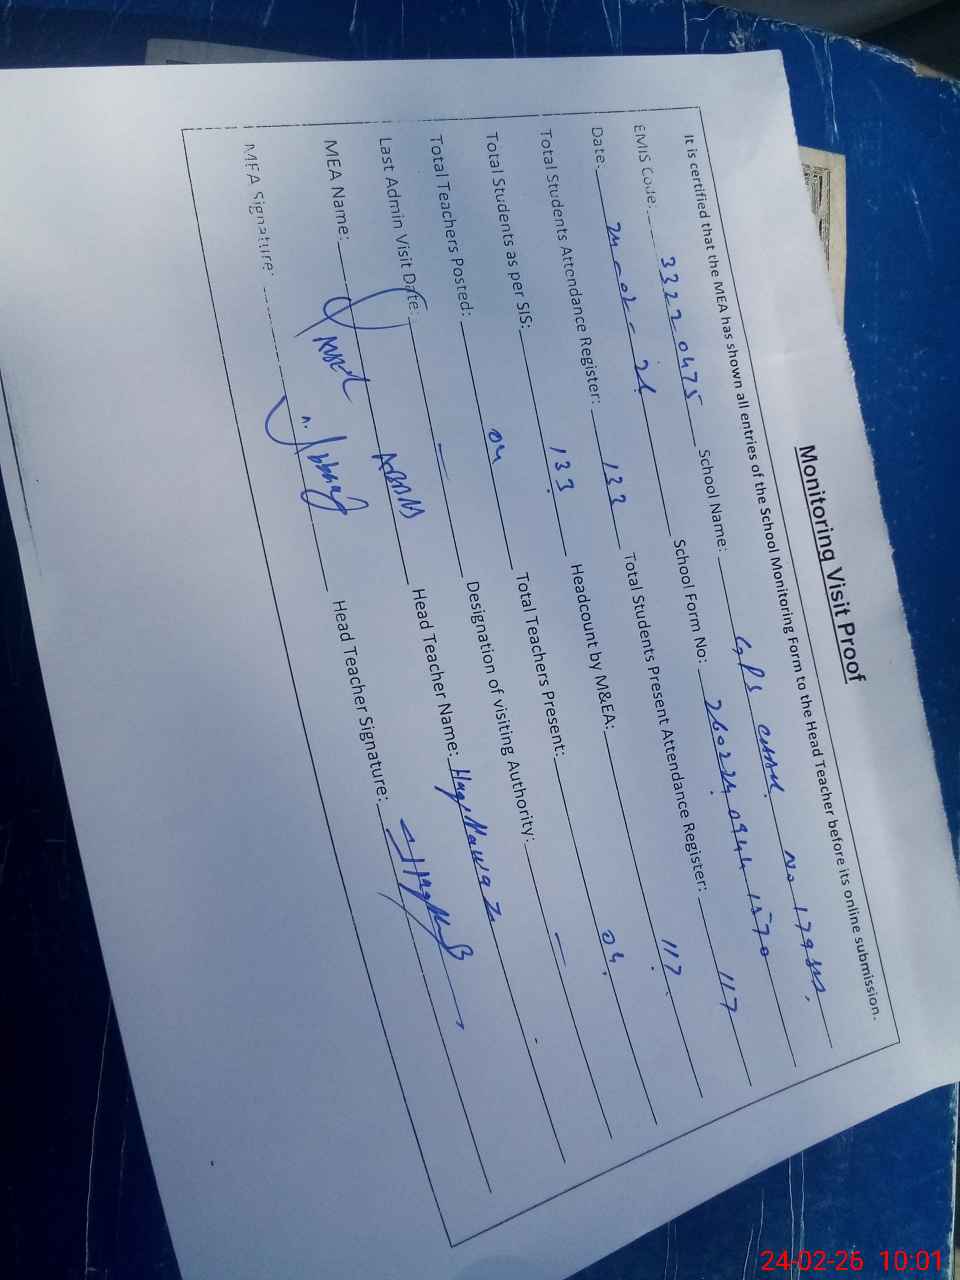 Monitoring Visit Proof
It is certified that the MEA has shown all entries of the School Monitoring Form to the Head Teacher before its online submission.
EMIS Code: 33220475 School Name: GPS No 179
Date: 24-02-26 School Form No: 260224 0944 1570
Total Students Attendance Register: 133 Total Students Present Attendance Register: 117
Total Students as per SIS: 133 Headcount by M&EA: 117
Total Teachers Posted: 04 Total Teachers Present: 04
Last Admin Visit Date: — Designation of visiting Authority: —
MEA Name: ABBAS Head Teacher Name: Haq Nawaz
MEA Signature: Head Teacher Signature:
24-02-26 10:01